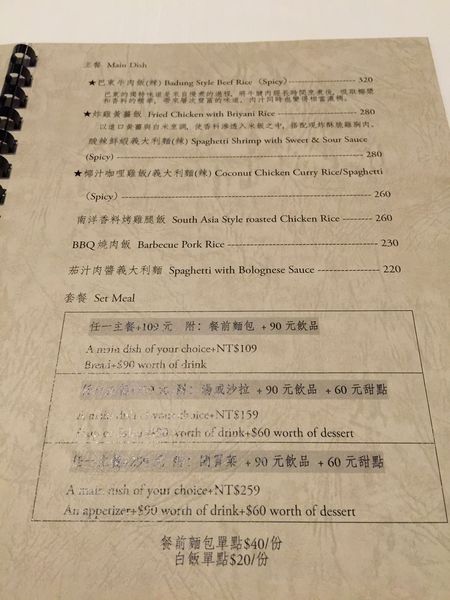 主餐 Main Dish
★巴東牛肉飯(辣) Badung Style Beef Rice (Spicy) 320
巴東的獨特味道是來自慢煮的過程, 將牛腱肉經長時間烹煮後, 吸取椰漿
和香料的精華, 帶來層次豐富的味道, 肉汁同時也變得相當濃稠。
★炸雞黃薑飯 Fried Chicken with Briyani Rice 280
以進口黃薑與白米烹調, 使香料滲透入米飯之中, 搭配現炸酥脆雞胸肉。
酸辣鮮蝦義大利麵(辣) Spaghetti Shrimp with Sweet & Sour Sauce
(Spicy) 280
★椰汁咖哩雞飯/義大利麵(辣) Coconut Chicken Curry Rice/Spaghetti
(Spicy) 260
南洋香料烤雞腿飯 South Asia Style roasted Chicken Rice 260
BBQ 燒肉飯 Barbecue Pork Rice 230
茄汁肉醬義大利麵 Spaghetti with Bolognese Sauce 220
套餐 Set Meal
任一主餐+109 元 附: 餐前麵包 + 90 元飲品
A main dish of your choice+NT$109
Bread+$90 worth of drink
任一主餐 元 附: 湯或沙拉 + 90 元飲品 + 60 元甜點
A main dish of your choice+NT$159
+$90 worth of drink+$60 worth of dessert
任一主餐 元 附: 開胃菜 + 90 元飲品 + 60 元甜點
A main dish of your choice+NT$259
An appetizer+$90 worth of drink+$60 worth of dessert
餐前麵包單點$40/份
白飯單點$20/份